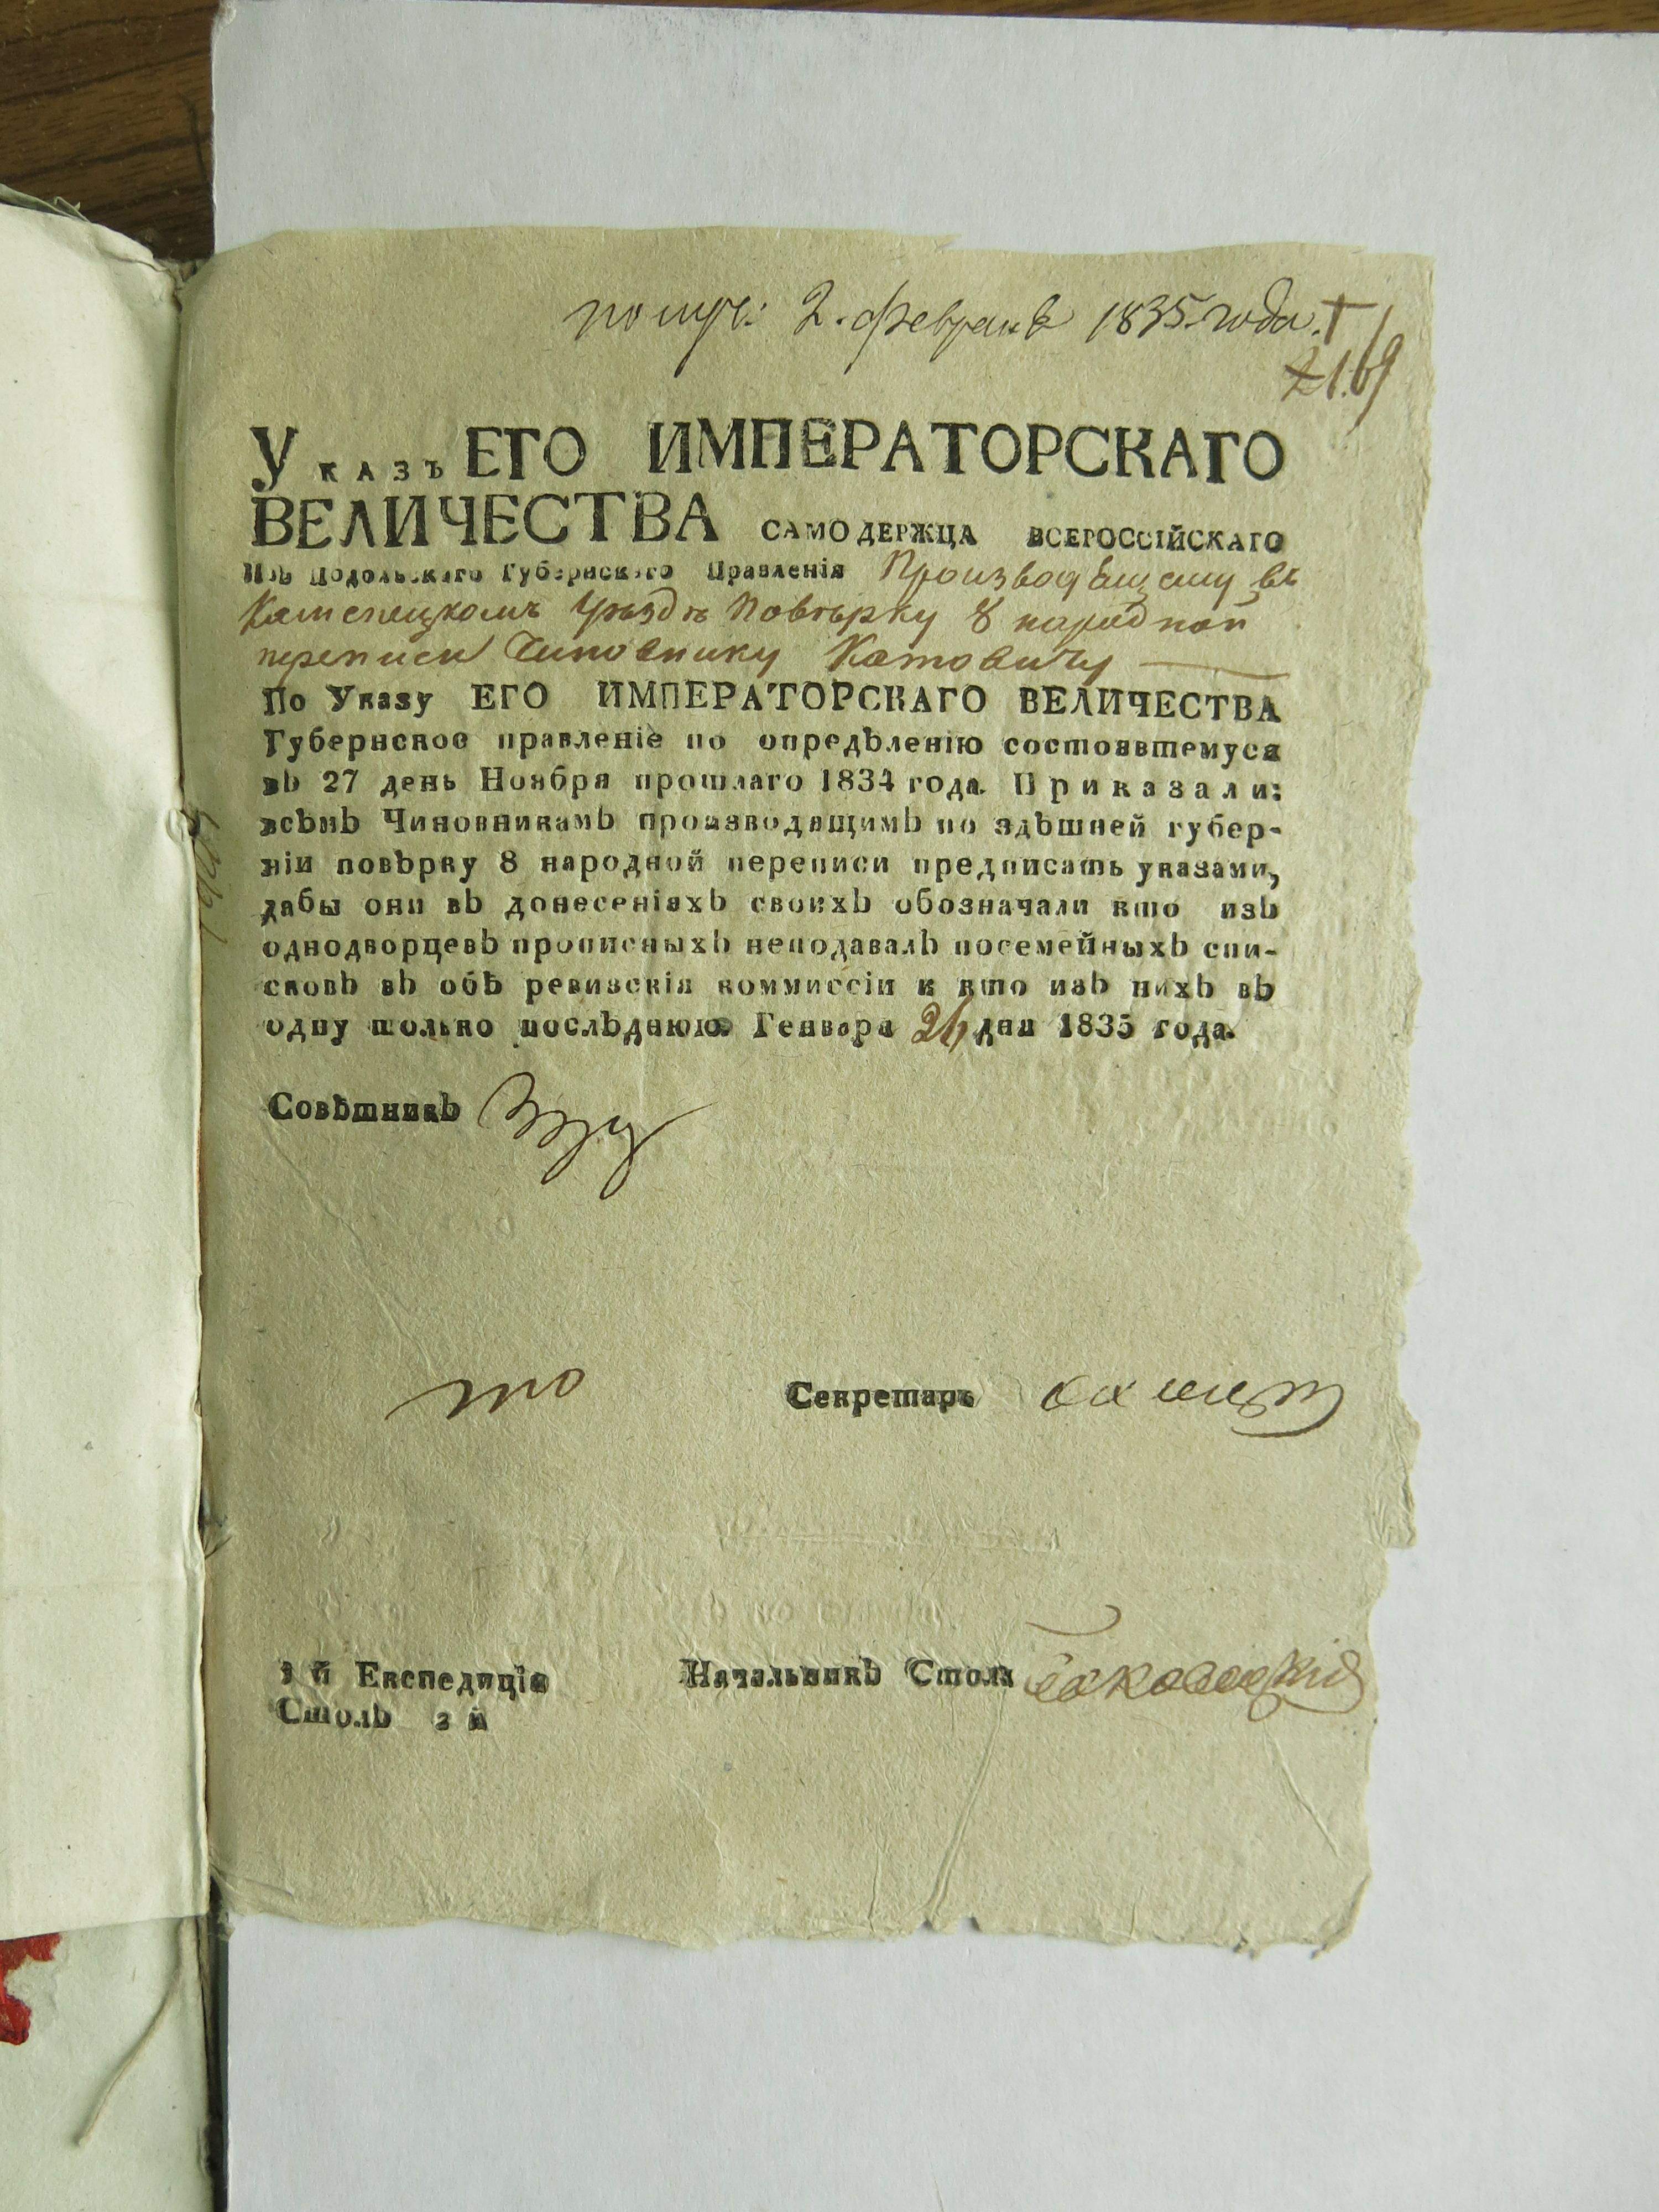 получ: 2. февраля 1835. года.
169
Указъ ЕГО ИМПЕРАТОРСКАГО
ВЕЛИЧЕСТВА САМОДЕРЖЦА ВСЕРОССІЙСКАГО
Изъ Подольскаго Губернскаго Правленія Производящему въ
Каменецкомъ Уѣздѣ Повѣрку 8 народной
переписи Чиновнику Котовичу
По Указу ЕГО ИМПЕРАТОРСКАГО ВЕЛИЧЕСТВА
Губернское правленіе по опредѣленію состоявшемуся
въ 27 день Ноября прошлаго 1834 года. Приказали:
всѣмъ Чиновникамъ производящимъ по здѣшней губер-
ніи повѣрку 8 народной переписи предписать указами,
дабы они въ донесеніяхъ своихъ обозначали кто изъ
однодворцевъ прописныхъ неподавалъ посемейныхъ спи-
сковъ въ обѣ ревизскія коммиссіи и кто изъ нихъ въ
одну только послѣднюю. Генваря дня 1835 года.
Совѣтникъ
Секретарь
й Експедиція Начальникъ Стола
Столъ й